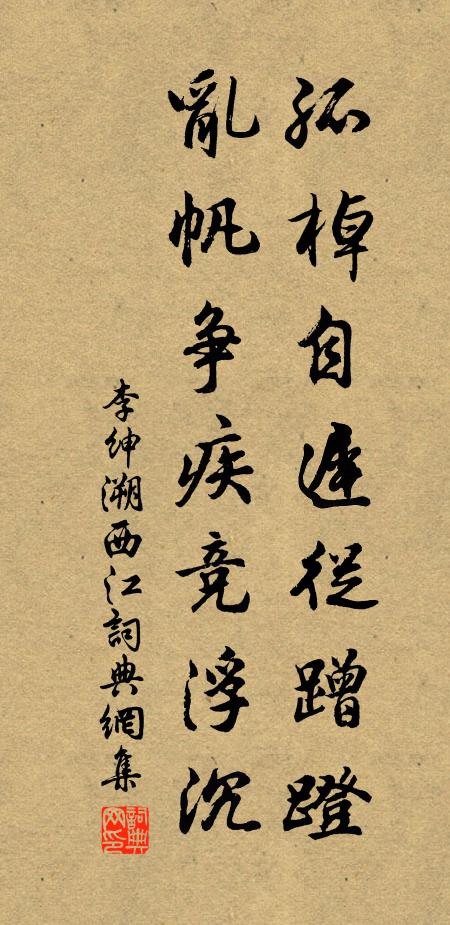 孤棹自遲從蹭蹬
亂帆爭疾竞浮沉
李紳溯西江詞典網集
詞典网印